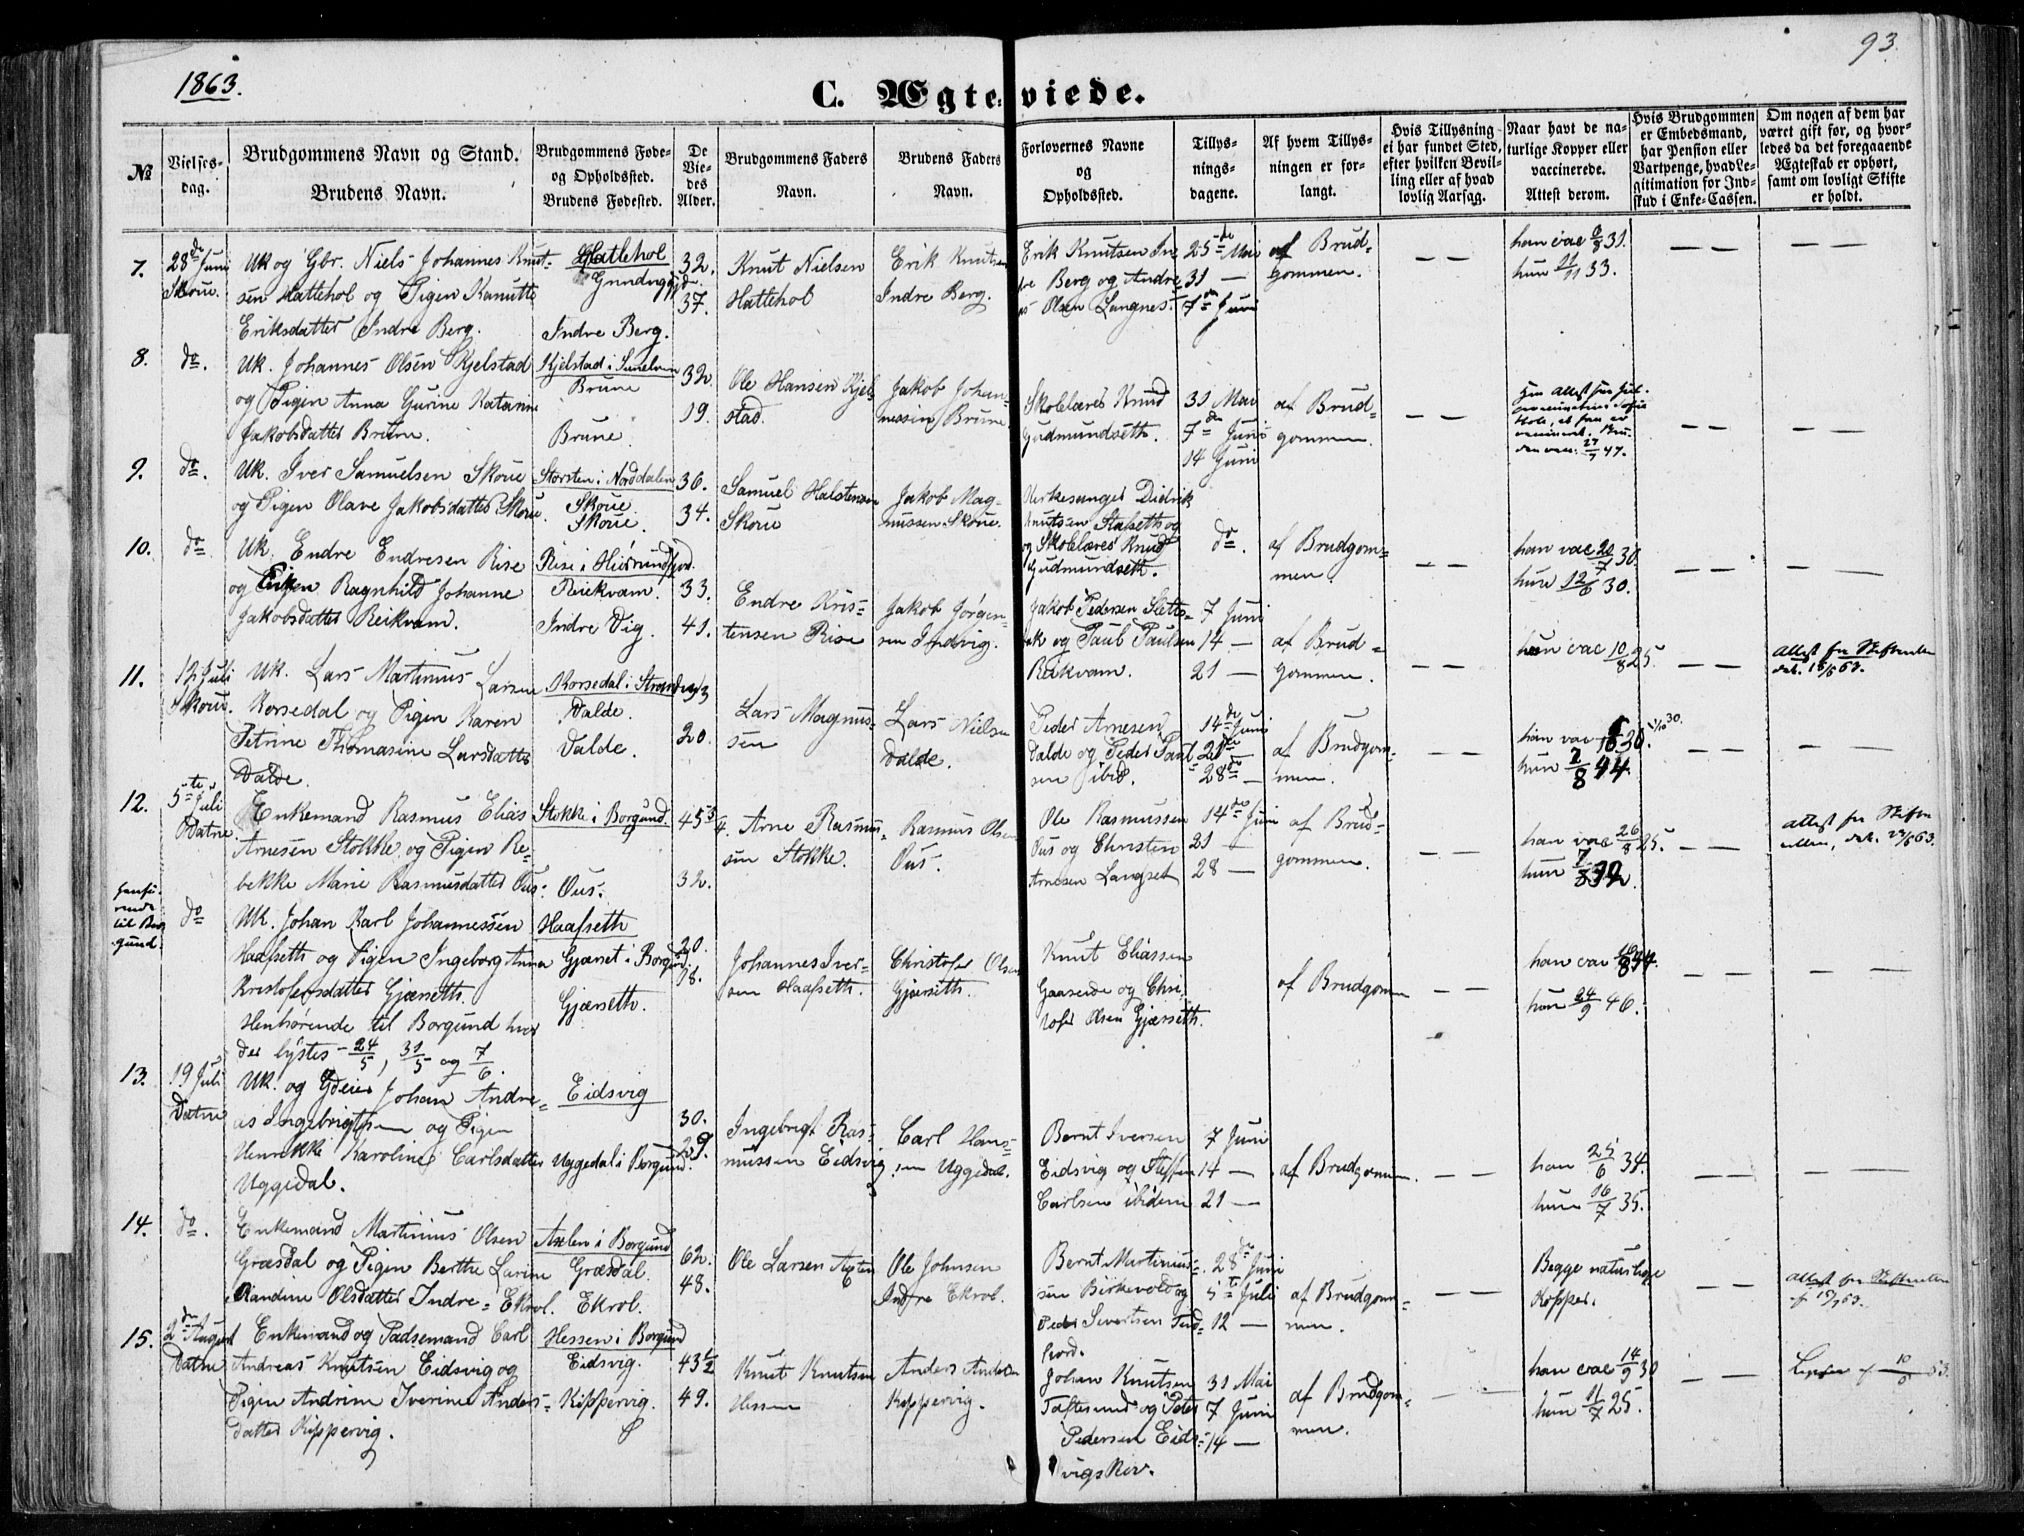 1863.
93.
C. Ægteviede.
No
Vielsesdag.
Brudgommens Navn og Stand.
Brudens Navn.
Brudgommens Føde-
og Opholdssted.
Brudens Fødested.
De
Vie-
des
Alder.
Brudgommens Faders
Navn.
Brudens Faders
Navn.
Forlovernes Navne
og
Opholdssted.
Tillys-
nings-
dagene.
Af hvem Tillys-
ningen er for-
langt.
Hvis Tillysning
ei har fundet Sted,
efter hvilken Bevil-
ling eller af hvad
lovlig Aarsag.
Naar havt de na-
turlige Kopper eller
vaccinerede.
Attest derom.
Hvis Brudgommen
er Embedsmand,
har Pension eller
Vartpenge, hvad Le-
gitimation for Ind-
skud i Enke-Cassen.
Om nogen af dem har
været gift før, og hvor-
ledes da det foregaaende
Ægteskab er ophørt,
samt om lovligt Skifte
er holdt.
7.
28de Juni
Skoue.
Uk og Gbr. Niels Johannes Knut-
sen Hattehol og Pigen Kanutte
Eriksdatter Indre Berg.
Hattehol
Indre Berg.
32.
37.
Knut Nielsen
Hattehol
Erik Knutsen
Indre Berg.
Erik Knutsen In
dre Berg og Andre
as Olsen Langnes.
25de Mai
31 —
7de Juni
af Brud-
gommen.
— —
han vac 31.
hun 11/11 33.
— —
— —
8.
do.
Uk. Johannes Olsen Kjelstad
og Pigen Anna Gurine Katarine
Jakobsdatter Brune.
Kjelstad i Sunelven
Brune
Brune.
32.
19.
Ole Hansen Kjel-
stad.
Jakob Johan-
nessen Brune
Skolelærer Knud
Gudmundseth.
31 Mai
7de Juni
14 Juni
af Brud-
gommen.
— —
27/7 47.
— —
— —
9.
do
Uk. Iver Samuelsen Skoue
og Pigen Olave Jakobsdatter Skoue.
Storsten i Norddalen
Skoue.
Skoue.
36.
34.
Samuel Halstensen
Skoue
Jakob Mag-
nussen Skoue.
Kirkesanger Didrik
Knutsen Stafseth og
og Skolelærer Knud
Gudmundseth.
do.
af Brudgom-
men.
— —
han vac 20/7 30.
hun 12/6 30.
— —
— —
10.
do
Uk. Endre Endresen Rise
og Enken Ragnhild Johanne
Jakobsdatter Reikvam.
Rise i Hiørundfjord.
Reiekvam.
Indre Vig.
33.
41.
Endre Kris-
tensen Rise
Jakob Jørgen-
sen Indvig.
Jakob Pedersen Slette-
bak og Paul Paulsen
Reikvam.
7 Juni
14 —
21 —
af Brud-
gommen.
— —
hun vac 10/8 25.
— —
Attest fra Skifteretten
11.
12 Juli
Skoue.
Uk. Lars Martinus Larsen
Korsedal og Pigen Karen
Petrine Thomasine Larsdatter
Valde.
Korsedal i Stranden
Valde.
Valde.
33
20.
Lars Magnus-
sen
Lars Nielsen
Valde.
Peder Arnesen
Valde og Peder Paul-
sen ibid.
14de Juni
21de —
28de —
af Brudgom-
men.
— —
han vac 30.
hun 7/8 44.
— —
— —
12.
5te Juli
Vatne.
Enkemand Rasmus Elias
Arnesen Stokke og Pigen Re-
bekke Marie Rasmusdatter Ous.
Stokke i Borgund.
Ous.
45 3/4.
32.
Arne Rasmus-
sen Stokke.
Rasmus Olsen
Ous.
Ole Rasmussen
Ous og Christen
Arnesen Langset
14de Juni
21 —
28 —
af Brud-
gommen.
— —
han vac 26/8 25.
hun 7/8 32.
— —
Attest fra Skifte-
retten, dat.
Henhø-
rende
til Bor-
gund.
do
Uk. Johan Karl Johannessen
Haafseth og Pigen Ingeborg Anna
Kristofersdatter Gjærseth.
Henhørende til Borgund hvor
der lystes 24/5, 31/5 og 7/6.
Haafseth
Gjærset i Borgund
Gjærseth.
20.
18.
Johannes Iver-
sen Haafseth.
Christofer Olsen
Gjærseth.
Knut Eliassen
Gaaseide og Chri-
stofer Olsen Gjærseth.
af Brudgommen
— —
han vac
hun 24/9 46.
— —
— —
13.
19 Juli
Vatne
Uk. og Gdeier Johan Andre-
as Ingebrigtsen og Pigen
Henrikke Karoline Carlsdatter
Uggedal.
Eidsvig
Uggedal i Borgund.
30.
29.
Ingebrigt Ras-
mussen Eidsvig
Carl Hans-
sen Uggedal.
Bernt Iversen
Eidsvig og Steffen
Carlsen ibidem
7 Juni
14 —
21 —
af Brudgommen.
— —
han 25/6 34.
hun 16/7 35.
— —
— —
14.
do.
Enkemand Martinus Olsen
Græsdal og Pigen Berthe Larine
Randine Olsdatter Indre-Ekrol.
Axlen i Borgund
Græsdal.
Ekrol.
62.
48.
Ole Larsen Axlen
Ole Johnsen
Indre Ekrol.
Bernt Martinus-
sen Birkevold og
Peder Sivertsen Tend-
fjord.
28de Juni
5te Juli
12 —
af Brudgom-
men.
— —
Begge naturlige
Kopper.
— —
Attest fra Skifteretten
15.
2den August
Vatne
Enkemand og Pladsemand Carl
Andreas Knutsen Eidsvig og
Pigen Andrine Iverine Anders-
datter Kippervig.
Hessen i Borgund
Eidsvig.
Kippervig.
43 1/2
49.
Knut Knutsen
Hessen
Anders Andersen
Kippervig.
Johan Knutsen
Taftesund og Peter
Pedersen Eids-
vigskov.
31 Mai
7 Juni
14 —
af Brudgom-
men.
— —
han vac 14/9 30
hun 11/7 25.
— —